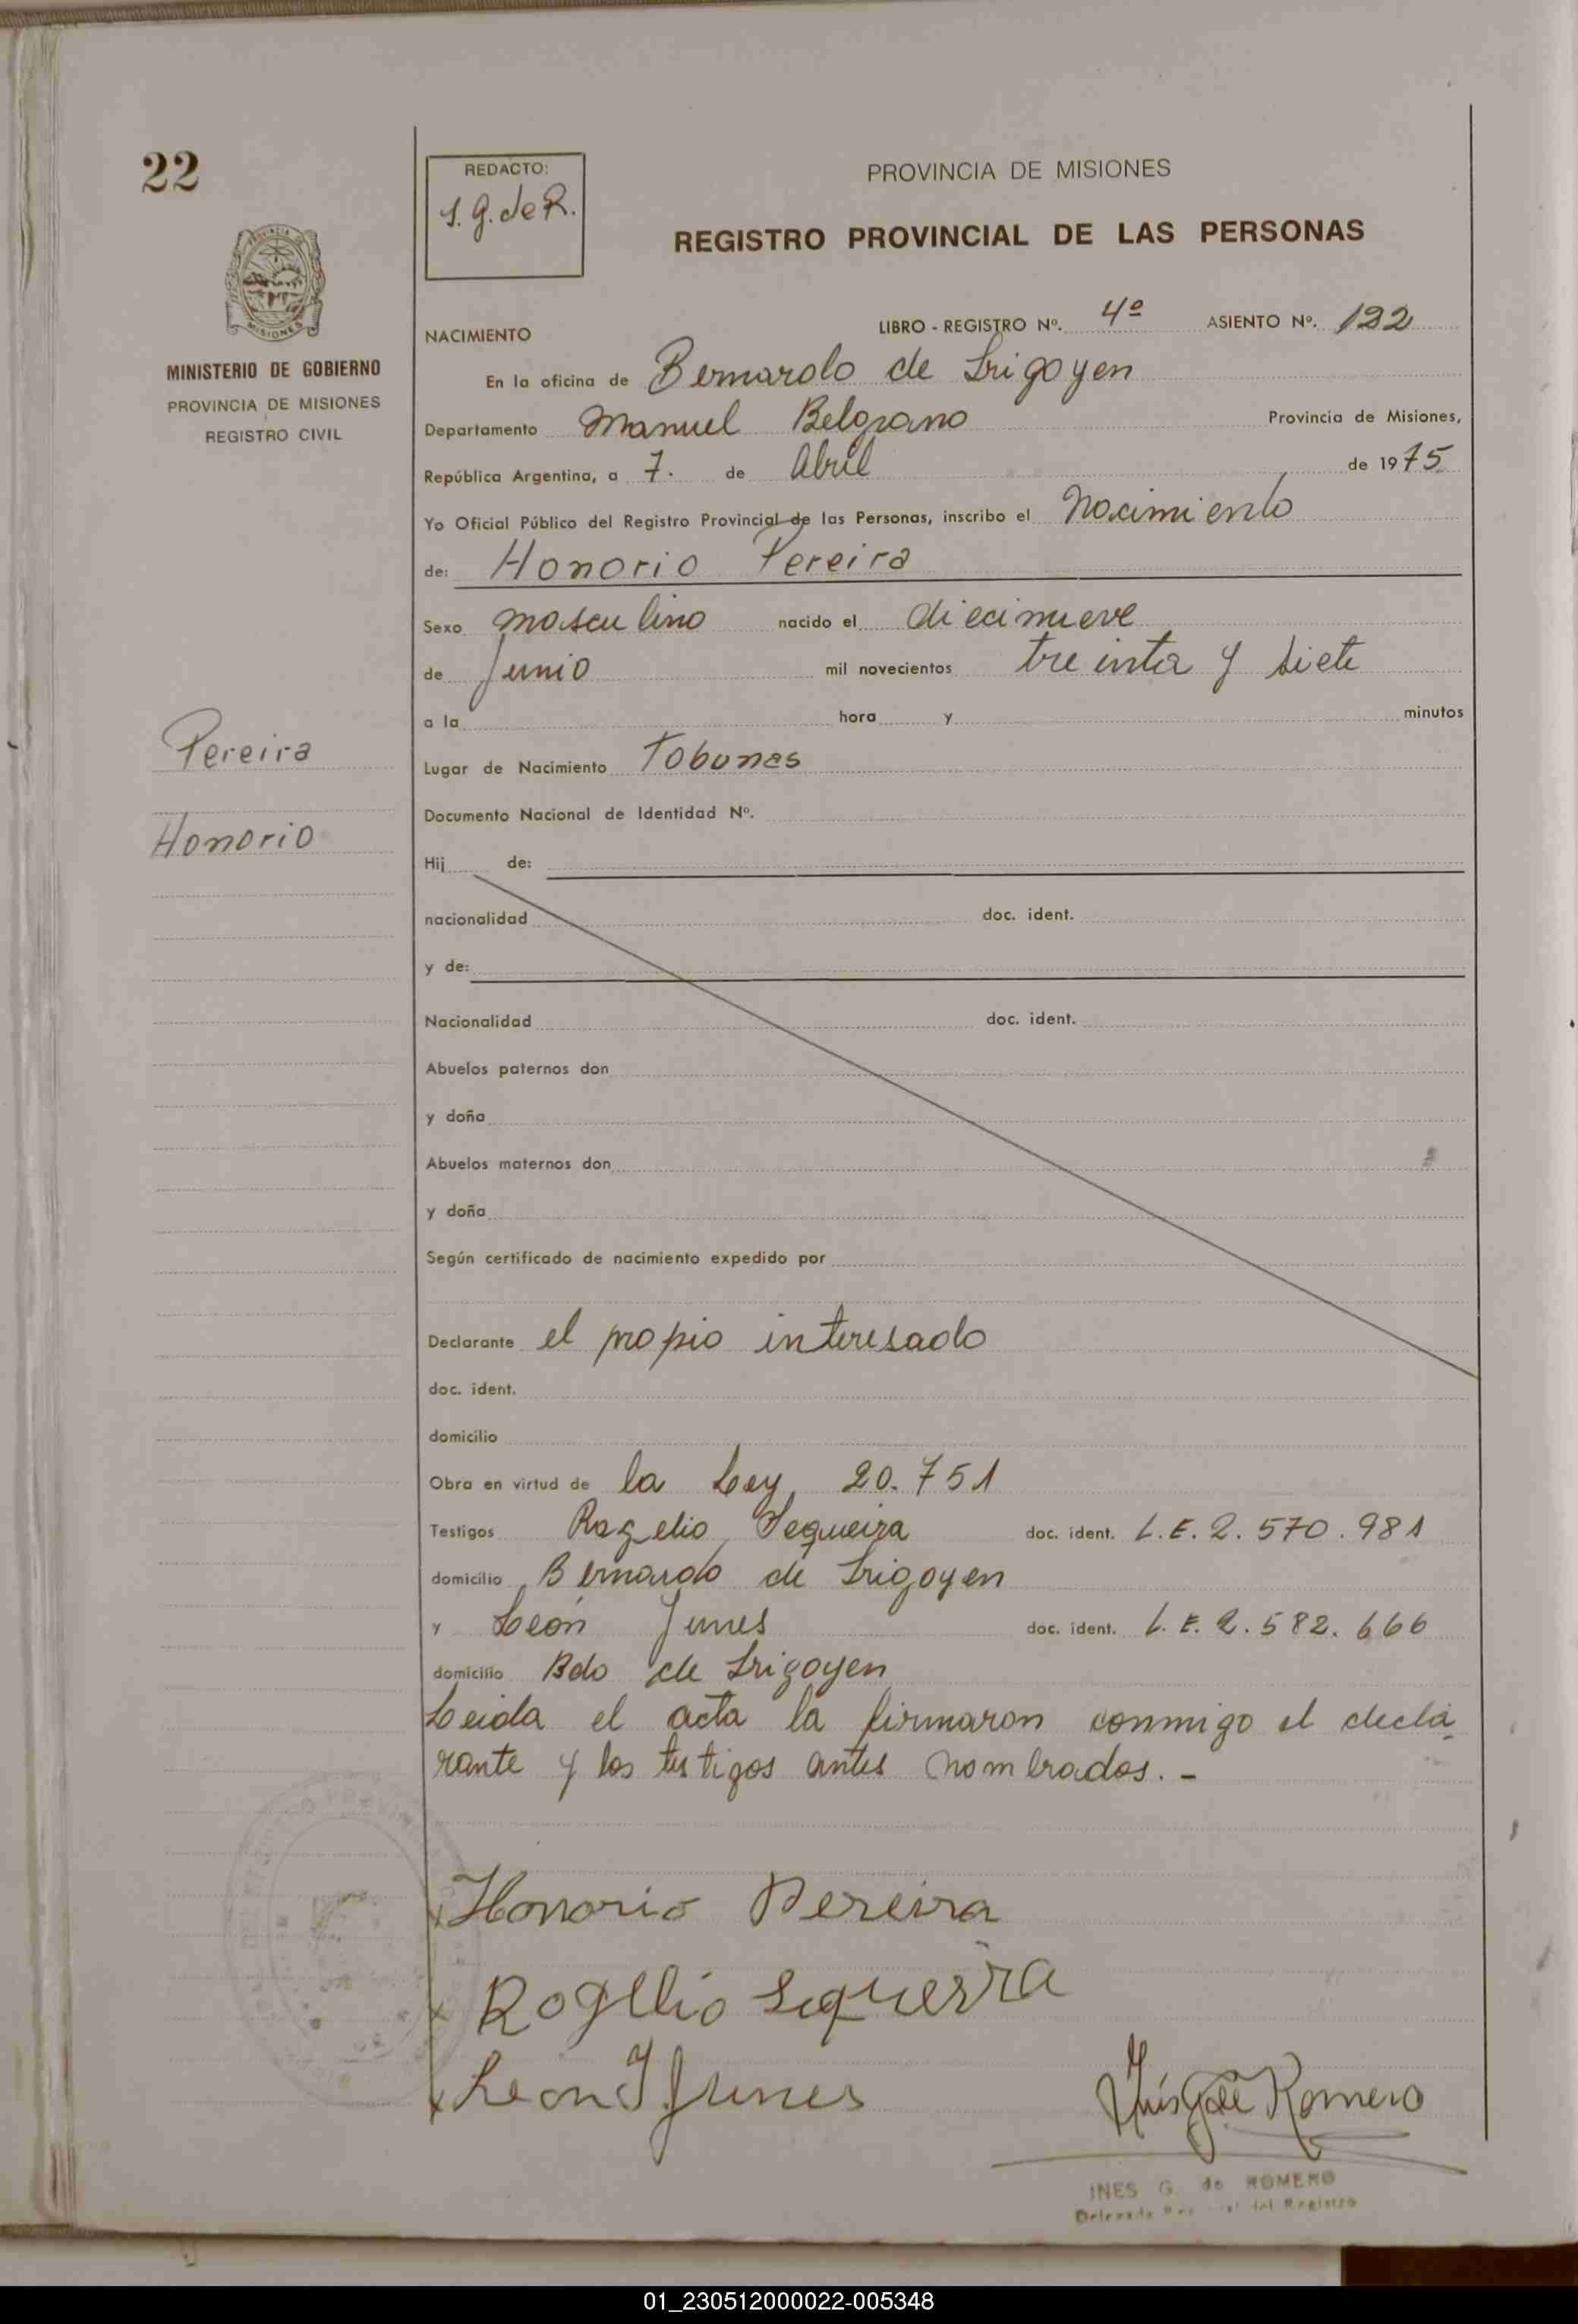 22
REDACTO:
I. G. de R.
PROVINCIA DE MISIONES
REGISTRO PROVINCIAL DE LAS PERSONAS
MISIONES
MINISTERIO DE GOBIERNO
PROVINCIA DE MISIONES
REGISTRO CIVIL
NACIMIENTO LIBRO - REGISTRO Nº. 4º ASIENTO Nº. 122
En la oficina de Bernardo de Irigoyen
Departamento Manuel Belgrano Provincia de Misiones,
República Argentina, a 7. de Abril de 1975
Yo Oficial Público del Registro Provincial de las Personas, inscribo el Nacimiento
de: Honorio Pereira
Sexo masculino nacido el diecinueve
de Junio mil novecientos treinta y siete
a la hora y minutos
Pereira
Lugar de Nacimiento Tobunas
Documento Nacional de Identidad Nº.
Honorio
Hij de:
nacionalidad doc. ident.
y de:
Nacionalidad doc. ident.
Abuelos paternos don
y doña
Abuelos maternos don
y doña
Según certificado de nacimiento expedido por
Declarante el propio interesado
doc. ident.
domicilio
Obra en virtud de la Ley 20.751
Testigos Rogelio Sequeira doc. ident. L.E. 2.570.981
domicilio Bernardo de Irigoyen
y León Junes doc. ident. L.E. 2.582.666
domicilio Bdo de Irigoyen
Leida el acta la firmaron conmigo el decla
rante y los testigos antes nombrados. -
Honorio Pereira
Rogelio Sequeira
Leon J. Junes
Inés G de Romero
INES G. de ROMERO
del Registro
01_230512000022-005348